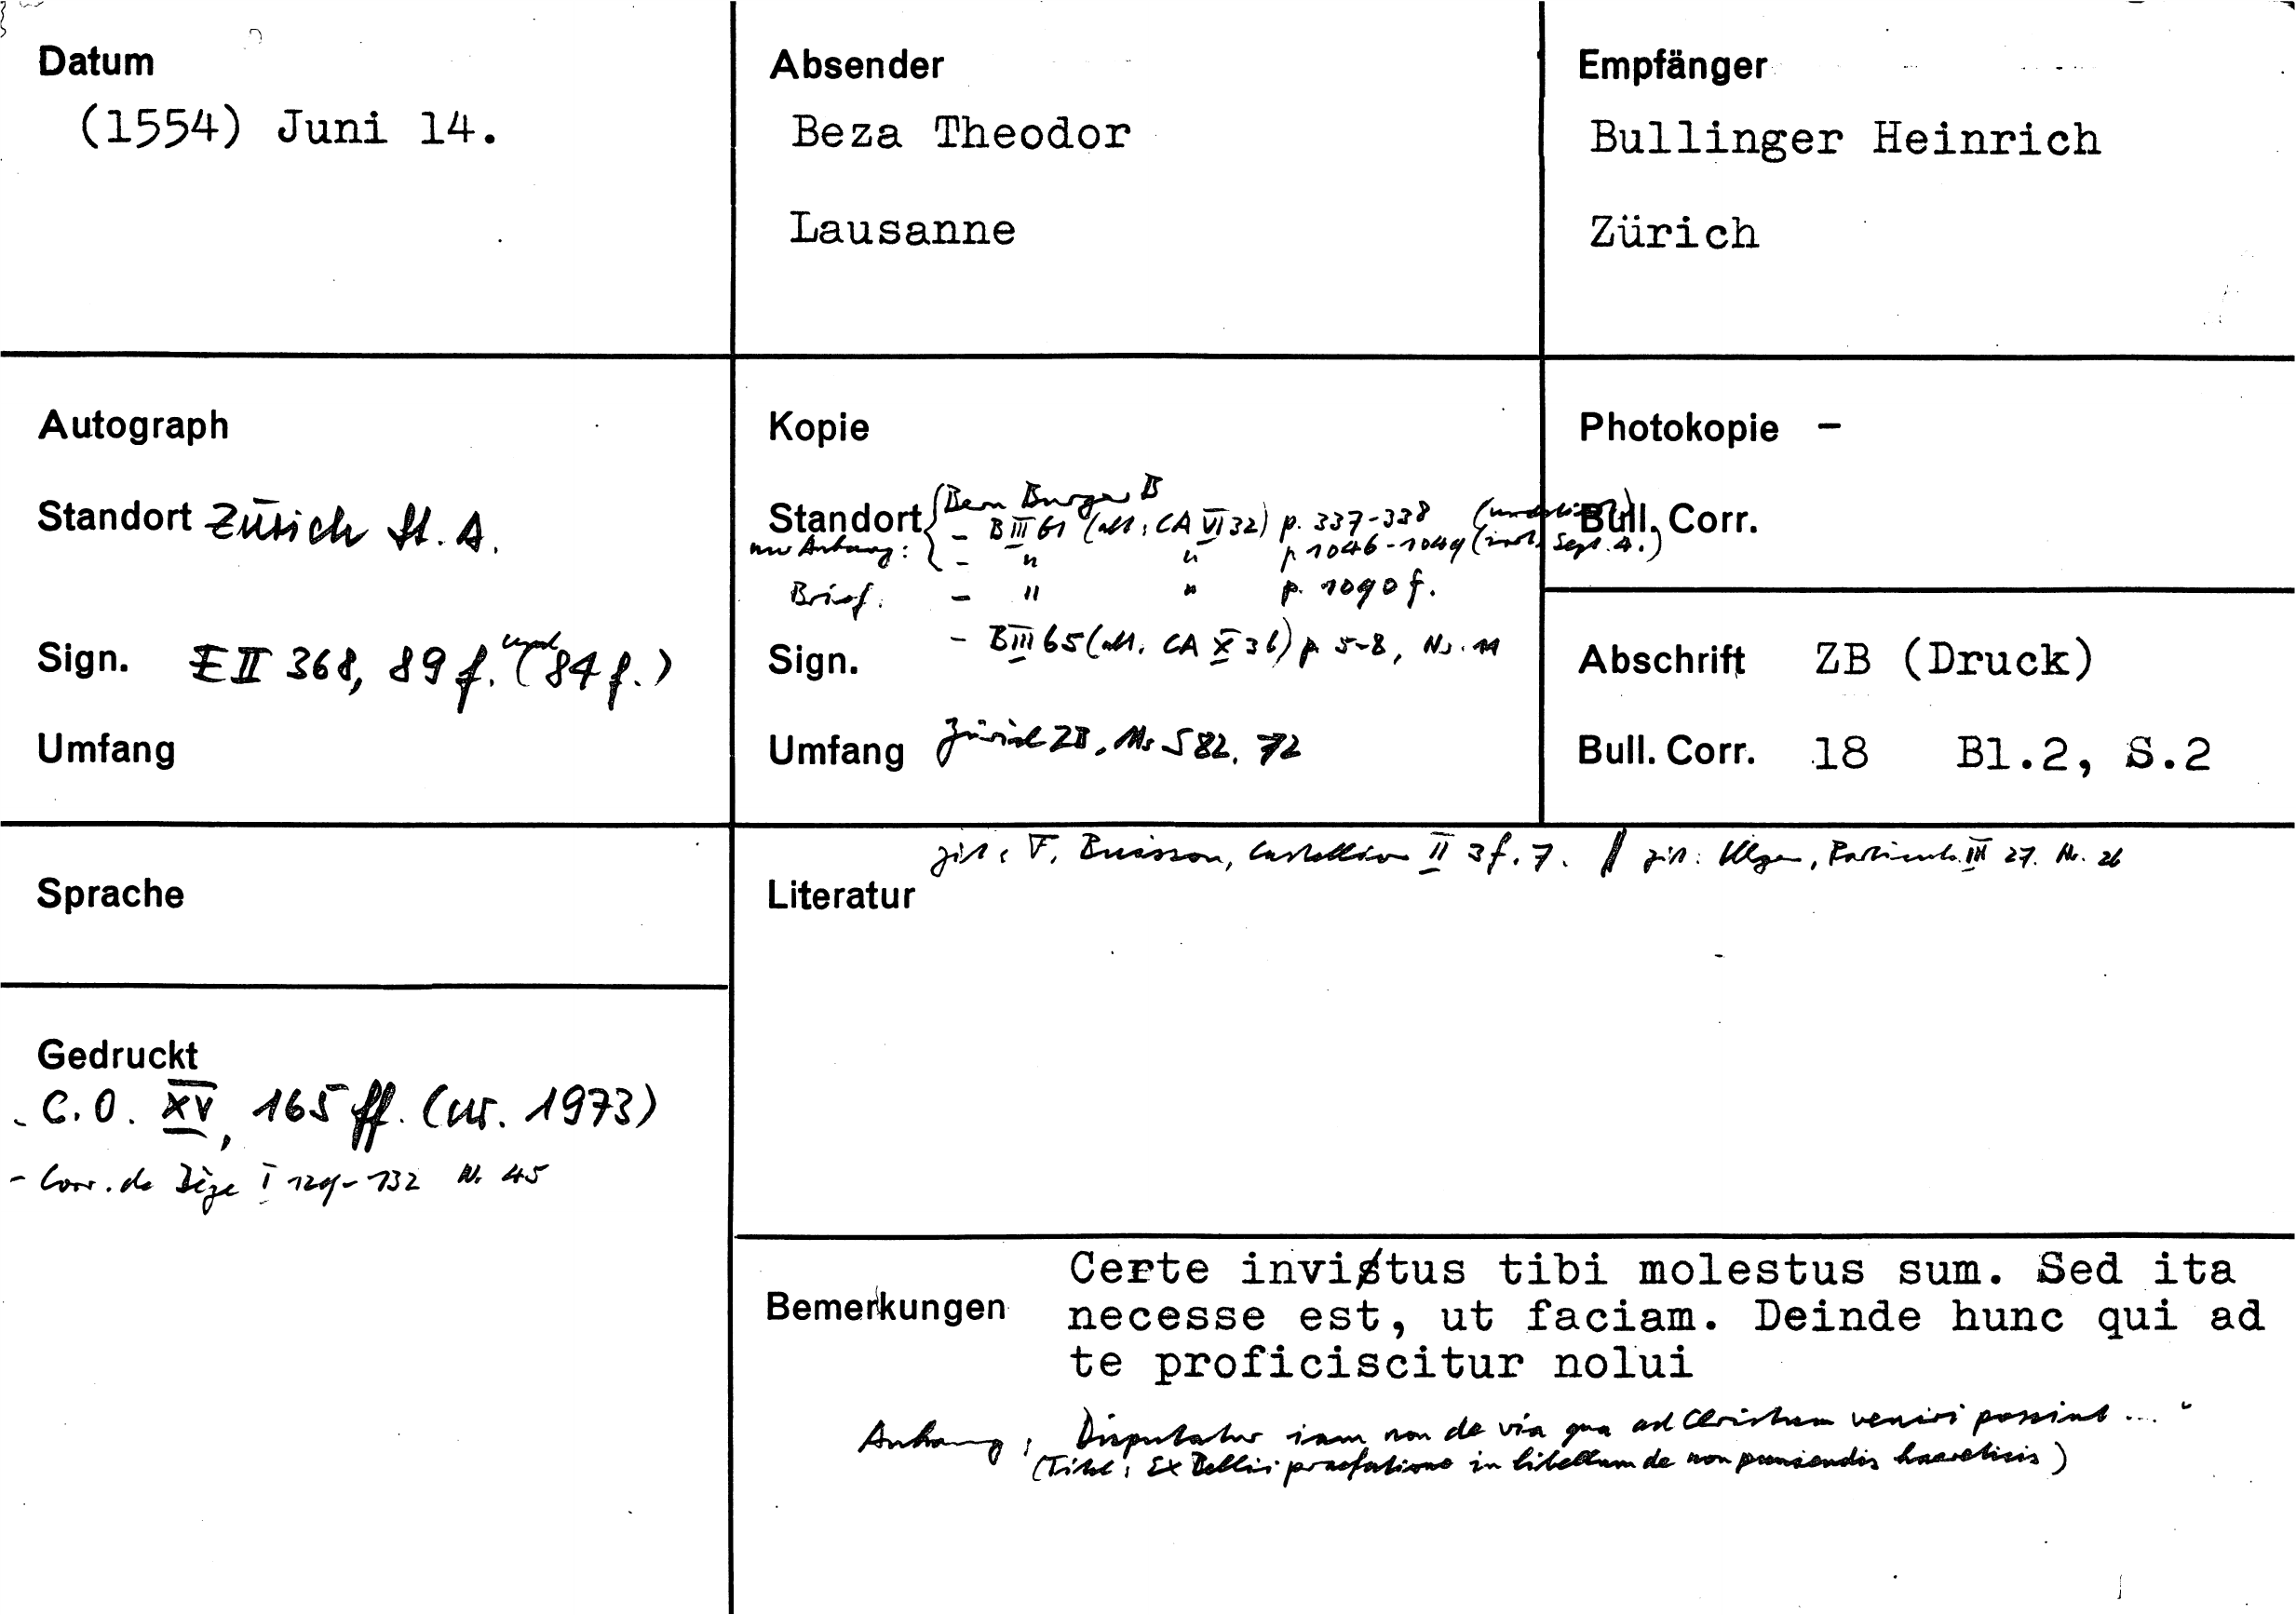 Datum
(1554) Juni 14.
Absender
Beza Theodor
Lausanne
Empfänger
Bullinger Heinrich
Zürich
Autograph
Standort Zürich St. A.
Sign. E II 368, 89 f. (84 f.)
Umfang
Kopie
Standort { Bern Burger B
- B III 61 (alt: CA VI 32) p. 337-338
nur Anhang: - " " p 1046-1049 (irrt. Sept. 4.)
Brief: - " " p. 1090 f.
- B III 65 (alt. CA X 36) p 5-8, Nr. 11
Sign.
Umfang Zürich ZB, Ms S 82, 72
Photokopie –
Bull. Corr.
Abschrift ZB (Druck)
Bull. Corr. 18 Bl.2, S.2
Sprache
Gedruckt
- C.O. XV, 165 ff. (nr. 1973)
- Corr. de Bèze I 129-132 N. 45
zit: F. Buisson, Castellion II 3f. 7. // zit: III 27. Nr. 26
Literatur
Bemerkungen
Certe invitus tibi molestus sum. Sed ita
necesse est, ut faciam. Deinde hunc qui ad
te proficiscitur nolui
Anhang: Disputatur iam non de via qua ad Christum veniri possint ... "
(Titel: Ex Bellii praefatione in libellum de non puniendis haereticis)